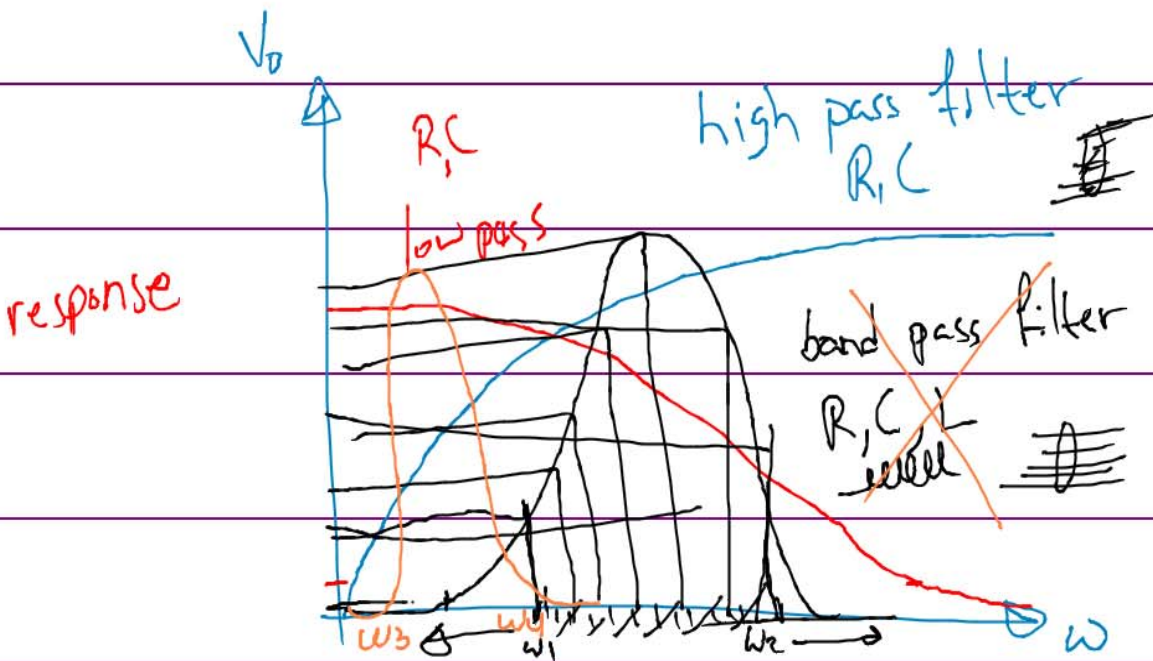 V₀
high pass filter
R,C
R,C
low pass
response
band pass filter
R,C,L
ω3
ω4
ω1
ω2
ω